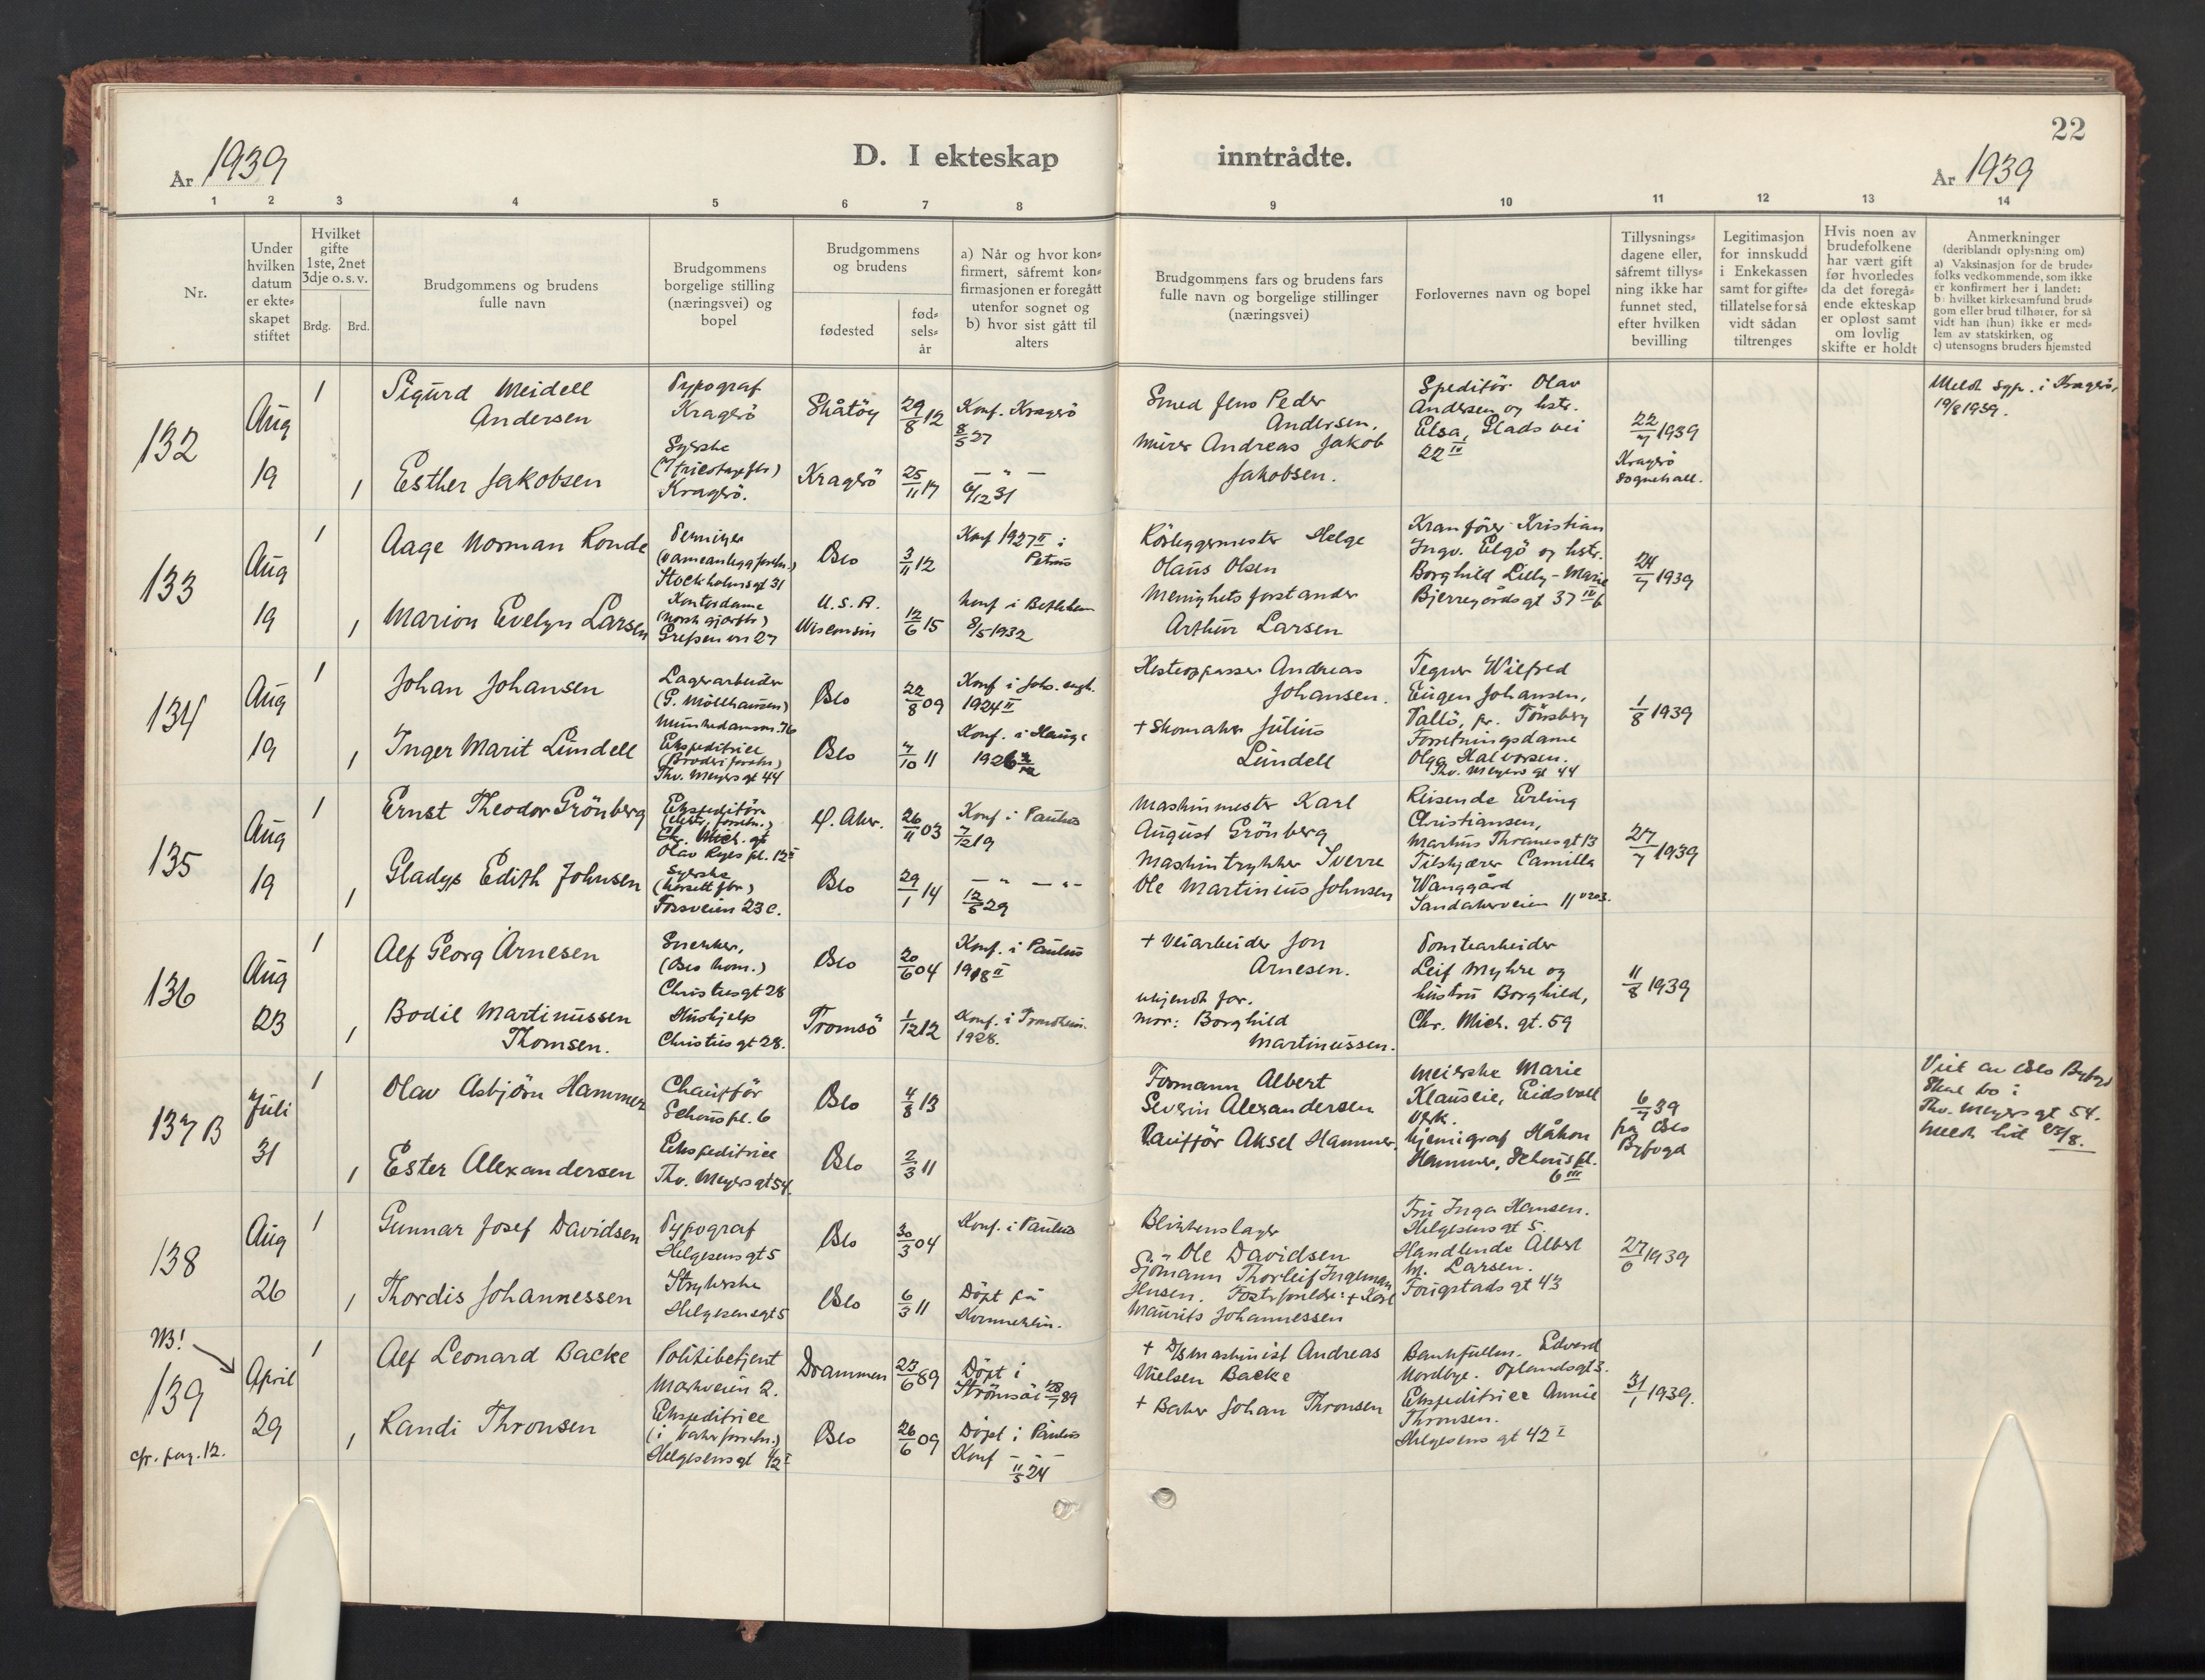 22
D. I ekteskap inntrådte.
År 1939
År 1939
1 2 3 4 5 6 7 8 9 10 11 12 13 14
Nr.
Under
hvilken
datum
er ekte-
skapet
stiftet
Hvilket
gifte
1ste, 2net
3dje o. s. v.
Brdg. Brd.
Brudgommens og brudens
fulle navn
Brudgommens
borgelige stilling
(næringsvei) og
bopel
Brudgommens
og brudens
fødested
fød-
sels-
år
a) Når og hvor kon-
firmert, såfremt kon-
firmasjonen er foregått
utenfor sognet og
b) hvor sist gått til
alters
Brudgommens fars og brudens fars
fulle navn og borgelige stillinger
(næringsvei)
Forlovernes navn og bopel
Tillysnings-
dagene eller,
såfremt tillys-
ning ikke har
funnet sted,
efter hvilken
bevilling
Legitimasjon
for innskudd
i Enkekassen
samt for gifte-
tillatelse for så
vidt sådan
tiltrenges
Hvis noen av
brudefolkene
har vært gift
før hvorledes
da det foregå-
ende ekteskap
er opløst samt
om lovlig
skifte er holdt
Anmerkninger
(deriblandt oplysning om)
a) Vaksinasjon for de brude-
folks vedkommende, som ikke
er konfirmert her i landet;
b) hvilket kirkesamfund brud-
gom eller brud tilhører, for så
vidt han (hun) ikke er med-
lem av statskirken, og
c) utensogns bruders hjemsted
132
Aug
19
1
1
Sigurd Meidell
Andersen
Esther Jakobsen
Typograf
Kragerö
Syerske
Kragerö.
Skåtöy
Kragerö
29/8 12
25/11 17
Konf. Kragerö
8/5 27
— " —
6/12 31
Smed Jens Peder
Andersen.
Murer Andreas Jakob
Jakobsen.
Speditör Olav
Andersen og hstr.
Elsa, Gladsvei
22 IV
22/7 1939
Kragerö
Sognekall.
Meldt sgpr. i Kragerö,
19/8 1939.
133
Aug
19
1
1
Aage Norman Ronde
Marion Evelyn Larsen
Stockholmsgt 31
Kontordame
Grefsenvn 27
Oslo
U.S.A.
Wisconsin
3/11 12
12/6 15
Konf 1927 II i
Petrus
Konf i Betlehem
8/5 1932
Rörleggermester Helge
Olaus Olsen
Menighetsforstander
Arthur Larsen
Kranförer Kristian
Ingv. Elgö og hstr.
Borghild Lilly-Marie
Bjerregårdsgt 37 IV b
24/7 1939
134
Aug
19
1
1
Johan Johansen
Inger Marit Lundell
Lagerarbeider
(P. Möllhausen)
Munkedamsv. 76
Ekspeditrice
(Broderiforretn.)
Thv. Meyers gt 44
Oslo
Oslo
22/8 09
7/10 11
Konf i Joh. mgh.
1924 II
Konf. i Hauge
1926
Hesteopasser Andreas
Johansen.
+ Skomaker Julius
Lundell
Tegner Wilfred
Eugen Johansen,
Vallö, pr. Tönsberg
Forretningsdame
Olga Halvorsen.
Thv. Meyers gt 44
1/8 1939
135
Aug
19
1
1
Ernst Theodor Grönberg
Gladys Edith Johnsen
Ekspeditör
(elektr. forretn.)
Olav Ryes pl. 12 II
Syerske
(korsettfbr.)
Fossveien 23 c.
V. Aker.
Oslo
26/11 03
29/1 14
Konf i Paulus
7/2 19
— " — " —
12/5 29
Maskinmester Karl
August Grönberg
Maskintrykker Sverre
Ole Martinius Johnsen
Reisende Erling
Christiansen,
Markus Thranes gt 13
Tilskjærer Camilla
Wanggård
Sandakerveien 11
27/7 1939
136
Aug
23
1
1
Alf Georg Arnesen
Bodil Martinussen
Thomsen.
Snekker,
(Oslo kom.)
Christies gt 28
Hushjelp
Christies gt 28.
Oslo
Tromsö
20/6 04
1/12 12
Konf. i Paulus
1918 II
Konf. i Trondheim.
1928.
+ Veiarbeider Jon
Arnesen.
ukjendt far.
mor: Borghild
Martinussen.
Tomtearbeider
Leif Myhre og
hustru Borghild,
Chr. Mich. gt. 59
11/8 1939
137 B
Juli
31
1
1
Olav Asbjörn Hammer
Ester Alexandersen
Chaufför
Schouspl. 6
Ekspeditrice
Thv. Meyers gt 54.
Oslo
Oslo
4/8 13
2/3 11
Formann Albert
Severin Alexandersen
Chaufför Aksel Hammer.
Meierske Marie
Klauseie, Eidsvoll
verk.
Kjemigraf Håkon
Hammer, Schouspl.
6 III
6/7 39
fra Oslo
Byfogd
Viet av Oslo Byfogd
Skal bo i
Thv. Meyers gt 54.
138
Aug
26
1
1
Gunnar Josef Davidsen
Thordis Johannessen
Typograf
Helgesens gt 5
Strykerske
Helgesens gt 5
Oslo
Oslo
30/3 04
6/3 11
Konf. i Paulus
Döpt på
Kvinneklin.
Blikkenslager
Ole Davidsen
Sjömann Thorleif Ingeman
Jensen. Fosterforeldre: + Karl
Maurits Johannessen
Fru Inga Hansen.
Helgesens gt 5.
Handlende Albert
M. Larsen.
Fougstads gt 43
27/6 1939
NB!
139
cfr. pag. 12.
April
29
1
1
Alf Leonard Backe
Randi Thronsen
Politibetjent
Markveien 2.
Ekspeditrice
(i bakerforretn.)
Helgesens gt 42 I
Drammen
Oslo
23/6 89
26/6 09
Döpt i
Strömsö 28/7 89
Döpt i Paulus
Konf — " —
11/5 24
+ D/S maskinist Andreas
Nielsen Backe
+ Baker Johan Thronsen
Bankfullm. Edvard
Nordbye. Oplandsgt 3.
Ekspeditrice Annie
Thronsen.
Helgesens gt 42 I
31/1 1939.